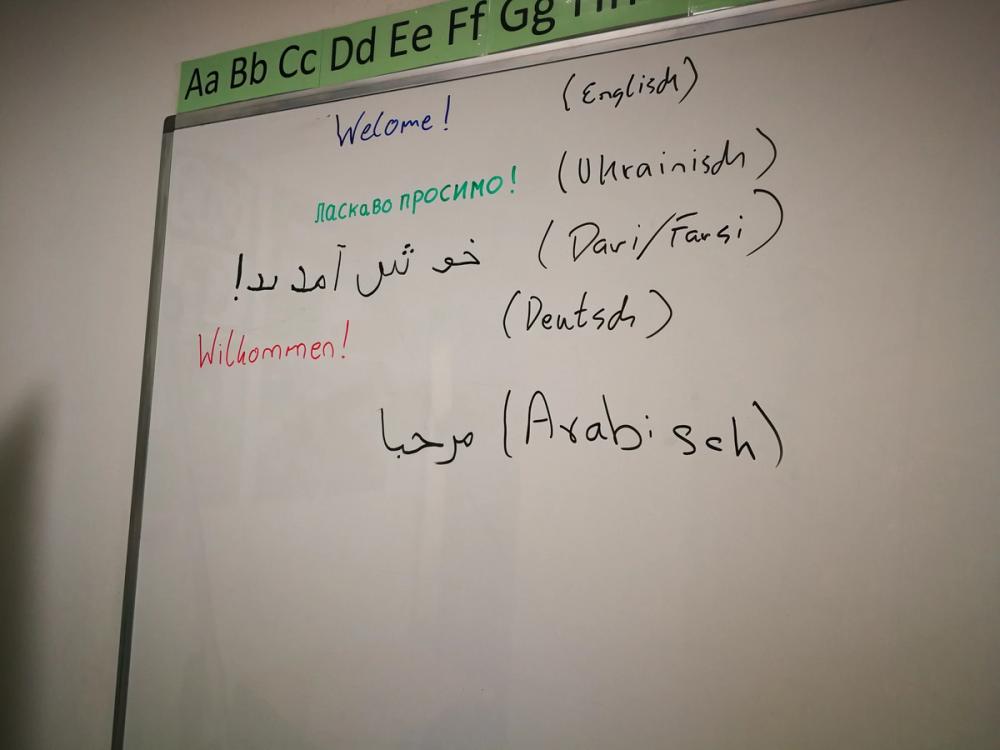 Aa Bb Cc Dd Ee Ff Gg
Welome! (Englisch)
Ласкаво просимо! (Ukrainisch)
خوش آمدید! (Dari/Farsi)
Wilkommen! (Deutsch)
مرحبا (Arabisch)